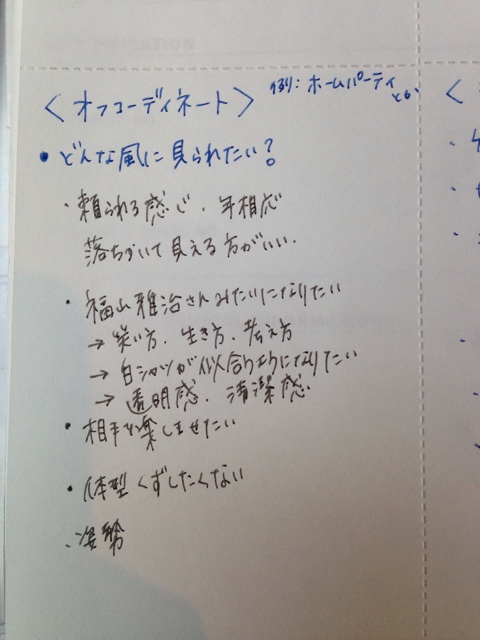 <オフコーディネート> 例:ホームパーティ
とか
• どんな風に見られたい?
・頼られる感じ、年相応
落ちついて見える方がいい.
• 福山雅治さんみたいになりたい
→ 笑い方、生き方、考え方
→ 白シャツが似合うようになりたい
→ 透明感、清潔感
• 相手を楽しませたい
• 体型くずしたくない
・姿勢
<